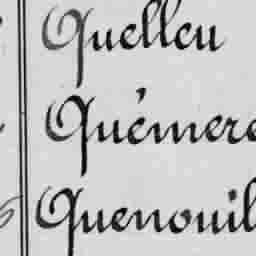 Quelleu
Quémere
Quenouil